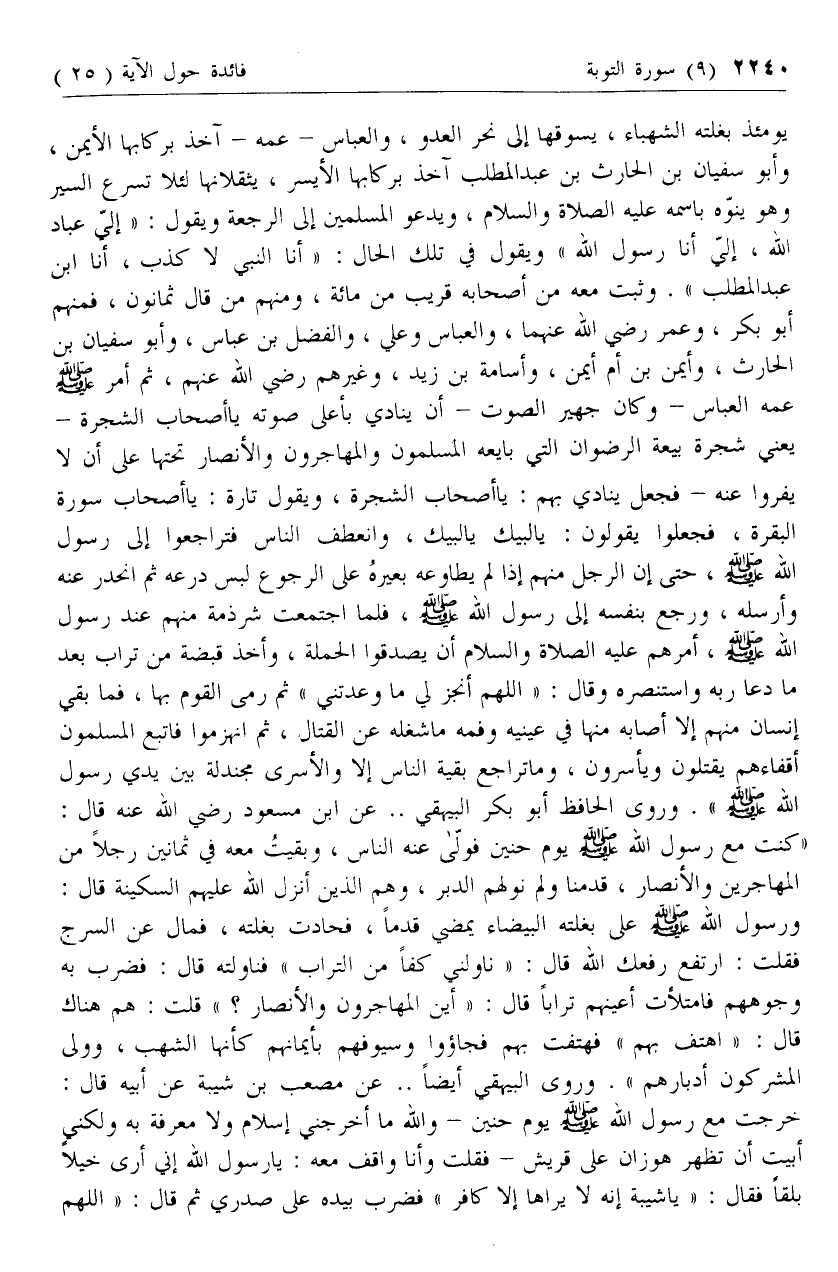 ٢٢٤٠ (٩) سورة التوبة فائدة حول الآية ( ٢٥ )
يومئذ بغلته الشهباء ، يسوقها إلى نحر العدو ، والعباس – عمه – آخذ بركابها الأيمن ،
وأبو سفيان بن الحارث بن عبدالمطلب آخذ بركابها الأيسر ، يثقلانها لئلا تسرع السير
وهو ينوّه باسمه عليه الصلاة والسلام ، ويدعو المسلمين إلى الرجعة ويقول : « إليّ عباد
الله ، إليّ أنا رسول الله » ويقول في تلك الحال : « أنا النبي لا كذب ، أنا ابن
عبدالمطلب » . وثبت معه من أصحابه قريب من مائة ، ومنهم من قال ثمانون ، فمنهم
أبو بكر ، وعمر رضي الله عنهما ، والعباس وعلي ، والفضل بن عباس ، وأبو سفيان بن
الحارث ، وأيمن بن أم أيمن ، وأسامة بن زيد ، وغيرهم رضي الله عنهم ، ثم أمر ﷺ
عمه العباس – وكان جهير الصوت – أن ينادي بأعلى صوته ياأصحاب الشجرة –
يعني شجرة بيعة الرضوان التي بايعه المسلمون والمهاجرون والأنصار تحتها على أن لا
يفروا عنه – فجعل ينادي بهم : ياأصحاب الشجرة ، ويقول تارة : ياأصحاب سورة
البقرة ، فجعلوا يقولون : يالبيك يالبيك ، وانعطف الناس فتراجعوا إلى رسول
الله ﷺ ، حتى إن الرجل منهم إذا لم يطاوعه بعيرهُ على الرجوع لبس درعه ثم انحدر عنه
وأرسله ، ورجع بنفسه إلى رسول الله ﷺ ، فلما اجتمعت شرذمة منهم عند رسول
الله ﷺ ، أمرهم عليه الصلاة والسلام أن يصدقوا الحملة ، وأخذ قبضة من تراب بعد
ما دعا ربه واستنصره وقال : « اللهم أنجز لي ما وعدتني » ثم رمى القوم بها ، فما بقي
إنسان منهم إلا أصابه منها في عينيه وفمه ماشغله عن القتال ، ثم انهزموا فاتبع المسلمون
أقفاءهم يقتلون ويأسرون ، وماتراجع بقية الناس إلا والأسرى مجندلة بين يدي رسول
الله ﷺ » . وروى الحافظ أبو بكر البيهقي .. عن ابن مسعود رضي الله عنه قال :
«كنت مع رسول الله ﷺ يوم حنين فولّى عنه الناس ، وبقيتُ معه في ثمانين رجلاً من
المهاجرين والأنصار ، قدمنا ولم نولهم الدبر ، وهم الذين أنزل الله عليهم السكينة قال :
ورسول الله ﷺ على بغلته البيضاء يمضي قدماً ، فحادت بغلته ، فمال عن السرج
فقلت : ارتفع رفعك الله قال : « ناولني كفاً من التراب » فناولته قال : فضرب به
وجوههم فامتلأت أعينهم تراباً قال : « أين المهاجرون والأنصار ؟ » قلت : هم هناك
قال : « اهتف بهم » فهتفت بهم فجاؤوا وسيوفهم بأيمانهم كأنها الشهب ، وولى
المشركون أدبارهم » . وروى البيهقي أيضاً .. عن مصعب بن شيبة عن أبيه قال :
خرجت مع رسول الله ﷺ يوم حنين – والله ما أخرجني إسلام ولا معرفة به ولكني
أبيت أن تظهر هوزان على قريش – فقلت وأنا واقف معه : يارسول الله إني أرى خيلاً
بلقاً فقال : « ياشيبة إنه لا يراها إلا كافر » فضرب بيده على صدري ثم قال : « اللهم